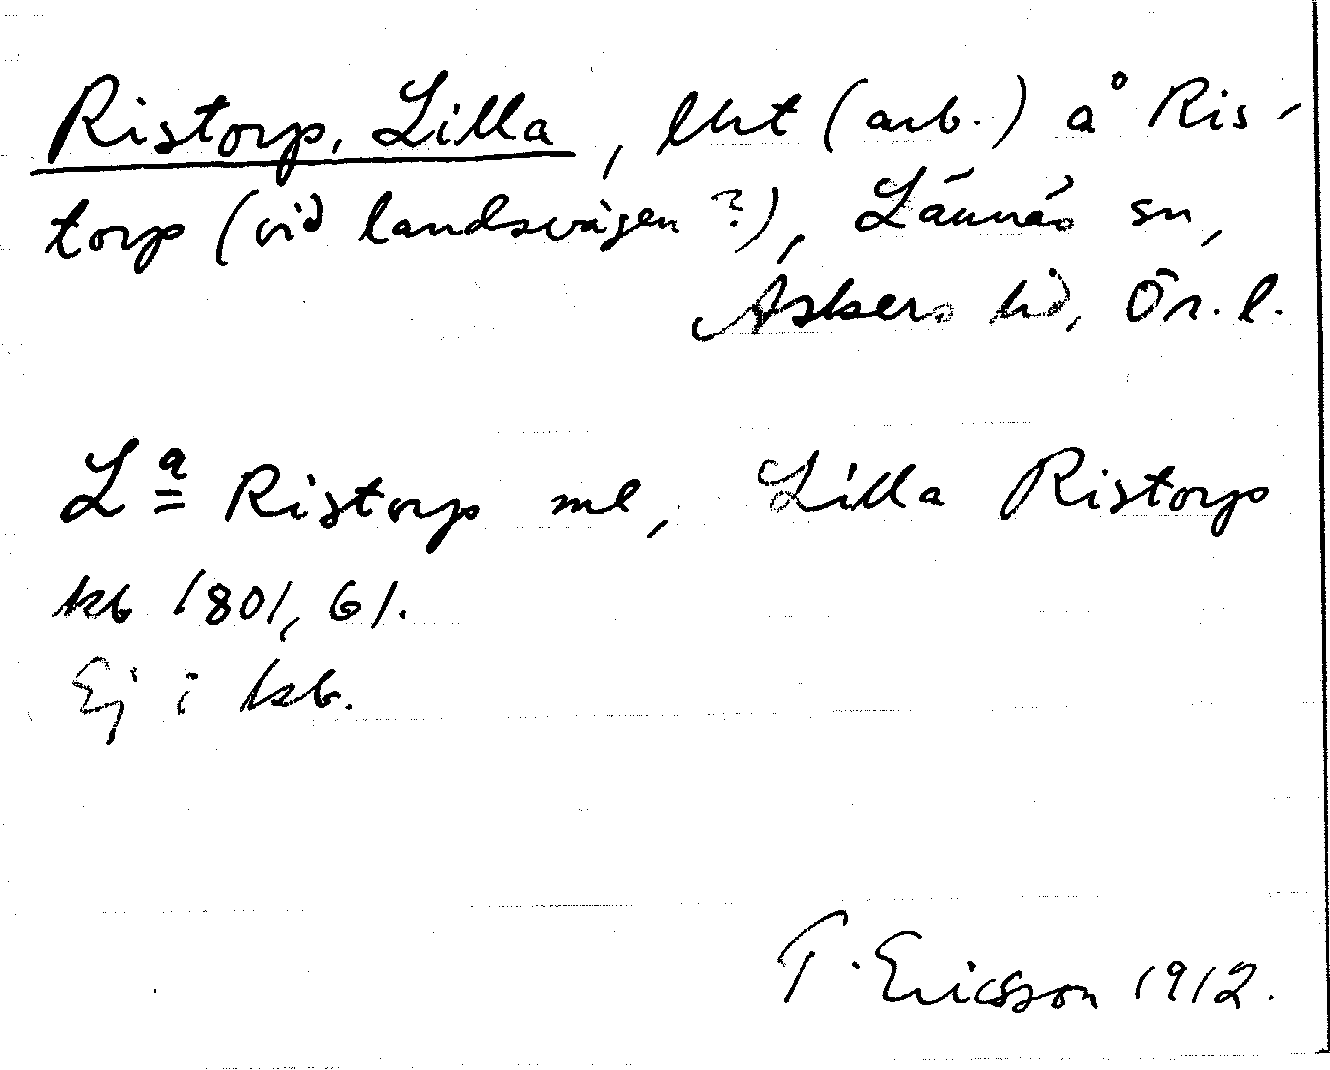 Ristorp, Lilla, lht (arb.) å Ris-
torp (vid landsvägen?), Lännäs sn,
Askers hd, Ör. l.
L<sup>a</sup> Ristorp ml, Lilla Ristorp
kb 1801, 61.
Ej i kb.
T. Ericsson 1912.